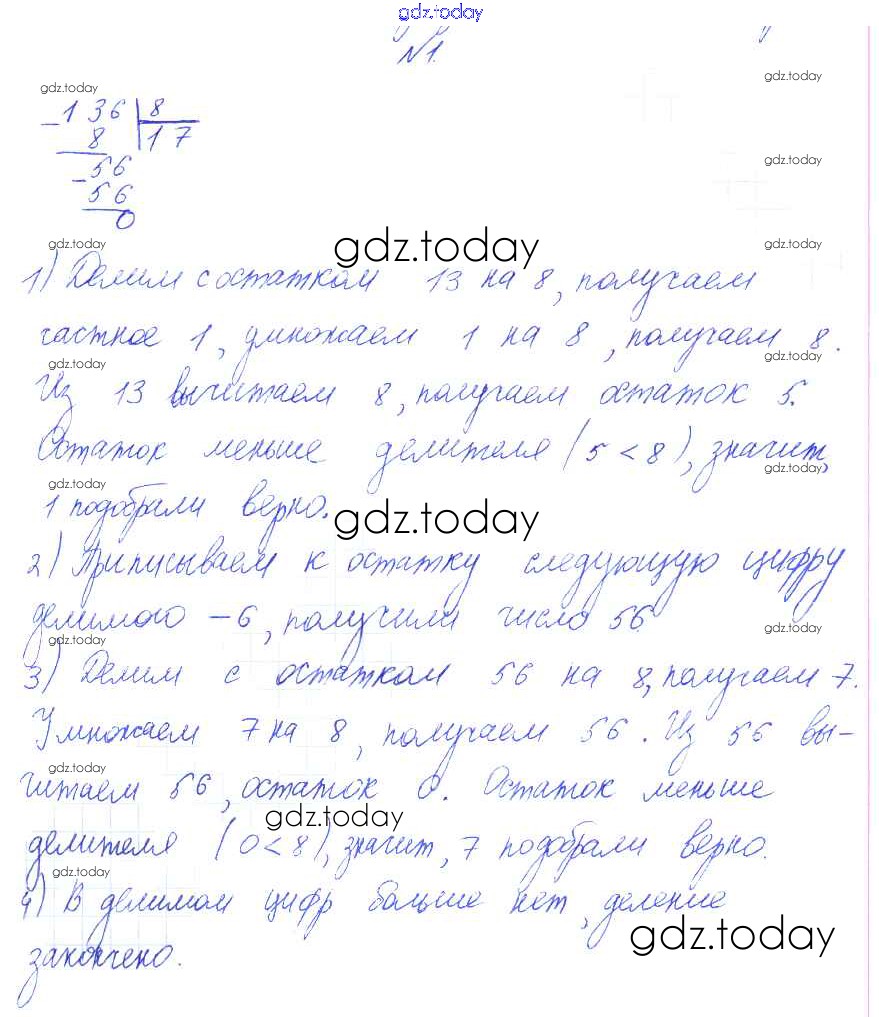 gdz.today
№1.
gdz.today
gdz.today
136 | 8
- 8 | 17
gdz.today
56
- 56
0
gdz.today
gdz.today
gdz.today
1) Делим с остатком 13 на 8, получаем
частное 1, умножаем 1 на 8, получаем 8.
gdz.today
gdz.today
Из 13 вычитаем 8, получаем остаток 5.
Остаток меньше делителя (5 < 8), значит,
gdz.today
gdz.today
1 подобрали верно.
gdz.today
2) Приписываем к остатку следующую цифру
делимого – 6, получили число 56.
gdz.today
gdz.today
3) Делим с остатком 56 на 8, получаем 7.
Умножаем 7 на 8, получаем 56. Из 56 вы-
gdz.today
читаем 56, остаток 0. Остаток меньше
gdz.today
делителя (0 < 8), значит, 7 подобрали верно.
gdz.today
4) В делимом цифр больше нет, деление
gdz.today
закончено.